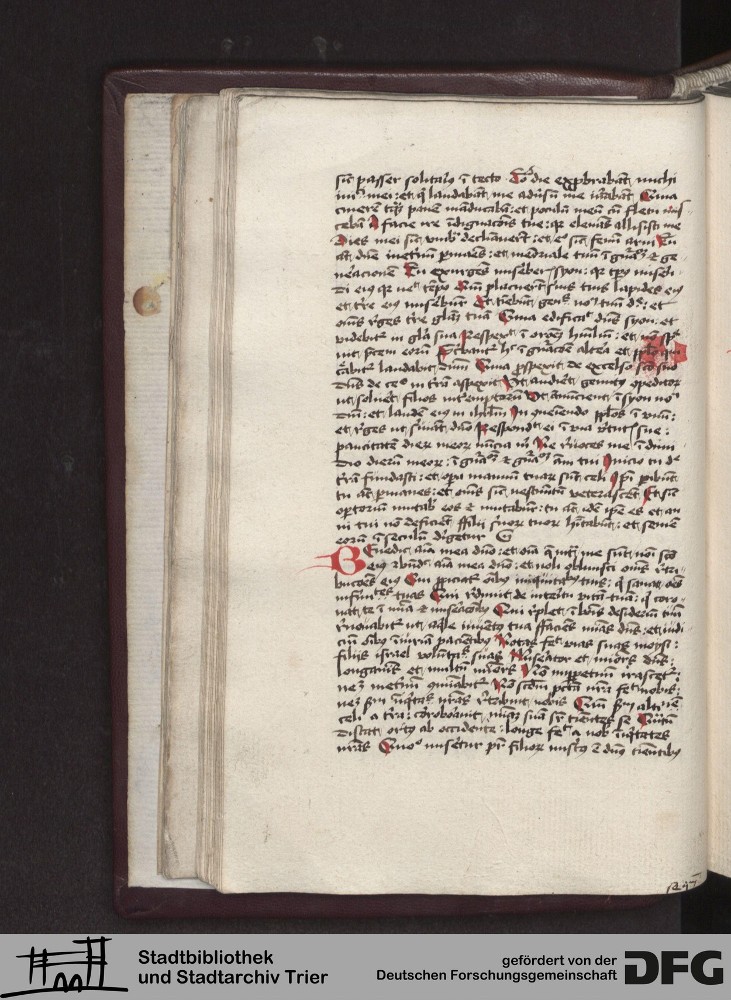 sicut passer solitarius in tecto Tota die exprobrabant michi
mei et qui laudabant me adversum me iurabant Quia
cinerem tamquam panem manducabam et poculum meum cum fletu
A facie ire indignacionis tue quia elevans allisisti me
Dies mei sicut umbra declinaverunt et ego sicut fenum arui Tu
autem domine in eternum permanes et memoriale tuum in
generacionem Tu exurgens misereberis syon quia tempus
eius quia venit tempus Quoniam placuerunt servis tuis lapides eius
et terre eius miserebuntur Et timebunt gentes nomen tuum domine et
omnes reges terre gloriam tuam Quia edificavit dominus syon et
videbitur in gloria sua Respexit in oracionem humilium et non
precem eorum Scribantur hec in generacione altera et
laudabit dominum Quia prospexit de excelso sancto suo
Dominus de celo in terram aspexit Ut audiret gemitus
ut solveret filios interemptorum Ut annuncient in syon nomen
domini et laudem eius in Iherusalem In populos in unum
et reges ut serviant domino Respondit ei in via virtutis sue
paucitatem dierum meorum nuncia michi Ne revoces me in
dierum meorum in anni tui Inicio tu domine
terram fundasti et opera manuum tuarum sunt celi Ipsi peribunt
tu autem permanes et omnes sicut vestimentum veterascent Et sicut
opertorium mutabis eos et mutabuntur tu autem idem ipse es et
tui non deficient filii servorum tuorum habitabunt et semen
eorum in seculum dirigetur
Benedic anima mea domino et omnia que intra me sunt nomini sancto
eius Benedic anima mea domino et noli oblivisci omnes
eius Qui propiciatur omnibus iniquitatibus tuis qui sanat omnes
infirmitates tuas Qui redimit de interitu vitam tuam qui
te in misericordia et miseracionibus Qui replet in bonis desiderium tuum
renovabitur ut aquile iuventus tua Faciens misericordias dominus et
omnibus iniuriam pacientibus Notas fecit vias suas moysi
filiis israel voluntates suas Miserator et misericors dominus
longanimis et multum misericors Non in perpetuum irascetur
neque in eternum comminabitur Non secundum peccata nostra fecit nobis
neque secundum iniquitates nostras retribuit nobis Quoniam secundum
celi a terra corroboravit misericordiam suam super timentes se Quantum
distat ortus ab occidente longe fecit a nobis iniquitates
nostras Quomodo miseretur pater filiorum misertus est dominus timentibus
Stadtbibliothek
und Stadtarchiv Trier
gefördert von der
Deutschen Forschungsgemeinschaft
DFG